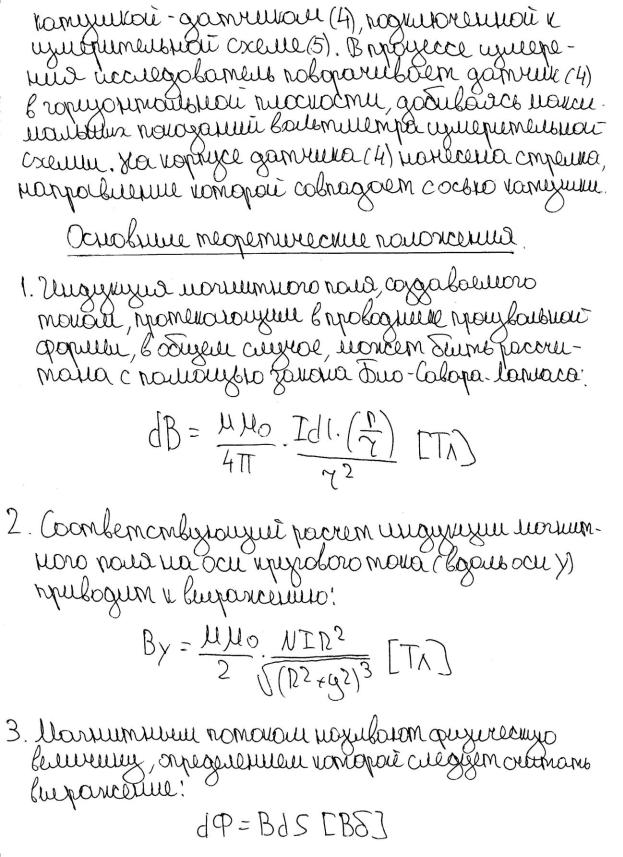 катушкой-датчиком (4), подключенной к
измерительной схеме (5). В процессе измере-
ния исследователь поворачивает датчик (4)
в горизонтальной плоскости, добиваясь макси-
мальных показаний вольтметра измерительной
схемы. На корпусе датчика (4) нанесена стрелка,
направление которой совпадает с осью катушки.
Основные теоретические положения.
1. Индукция магнитного поля, создаваемого
током, протекающим в проводнике произвольной
формы, в общем случае, может быть рассчи-
тана с помощью закона Био-Савара-Лапласа:
dB = μμ₀/4π · Idl·(r/r)/r² [Тл]
2. Соответствующий расчет индукции магнит-
ного поля на оси кругового тока (вдоль оси y)
приводит к выражению:
By = μμ₀/2 · NIR²/√(R²+y²)³ [Тл]
3. Магнитным потоком называют физическую
величину, определением которой следует считать
выражение:
dФ = BdS [Вб]